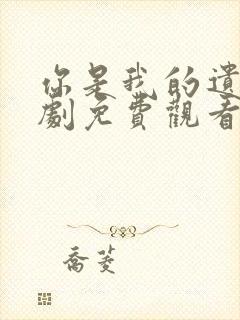 你是我的遺
劇免費觀看
喬菱